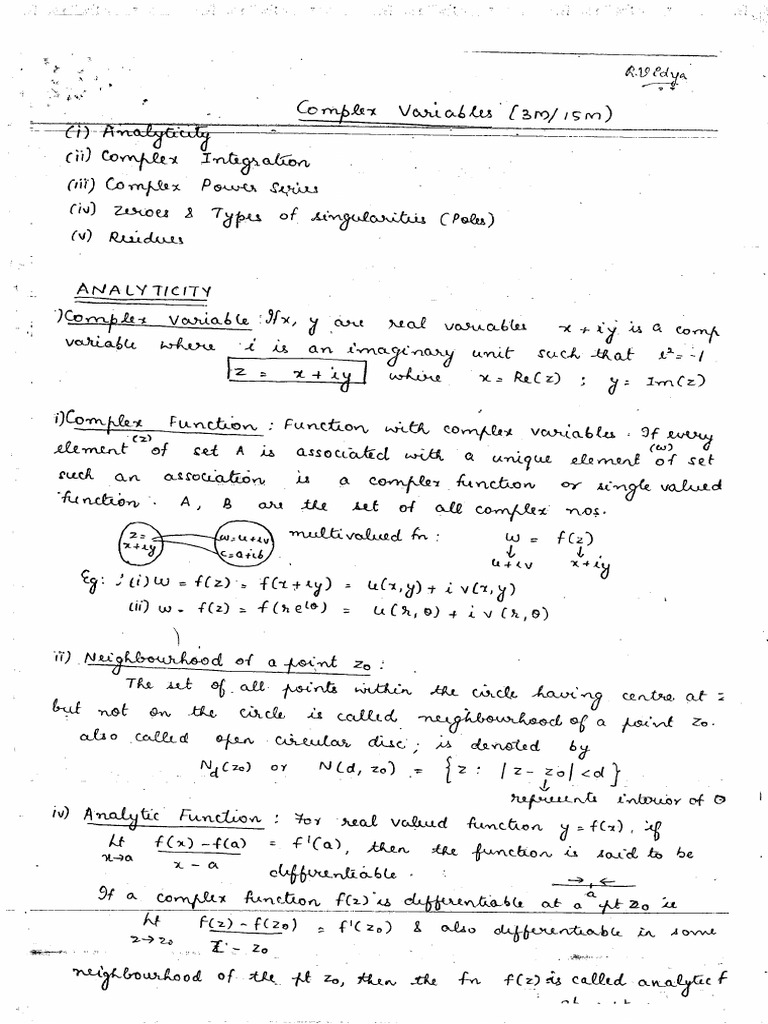 R.Vidya
Complex Variables (3M/15M)
(i) Analyticity
(ii) Complex Integration
(iii) Complex Power Series
(iv) Zeroes & Types of singularities (Poles)
(v) Residues
ANALYTICITY
) Complex Variable : If x, y are real variables x + iy is a comp
variable where i is an imaginary unit such that i² = -1
z = x + iy where x = Re(z) ; y = Im(z)
i) Complex Function : Function with complex variables. If every
element (z) of set A is associated with a unique element (w) of set
such an association is a complex function or single valued
function. A, B are the set of all complex nos.
z = x+iy w = u+iv c = a+ib multivalued fn : w = f(z)
↓ u+iv ↓ x+iy
Eg: (i) w = f(z) = f(x+iy) = u(x,y) + i v(x,y)
(ii) w = f(z) = f(re^iθ) = u(r,θ) + i v(r,θ)
ii) Neighbourhood of a point z₀ :
The set of all points within the circle having centre at z
but not on the circle is called neighbourhood of a point z₀.
also called open circular disc ; is denoted by
N_d(z₀) or N(d, z₀) = {z : |z - z₀| < d}
↓ represents interior of O
iv) Analytic Function : For real valued function y = f(x), if
Lt x→a f(x) - f(a) / x - a = f'(a), then the function is said to be
differentiable. → a ←
If a complex function f(z) is differentiable at a pt z₀ ie
Lt z→z₀ f(z) - f(z₀) / z - z₀ = f'(z₀) & also differentiable in some
neighbourhood of the pt z₀, then the fn f(z) is called analytic f